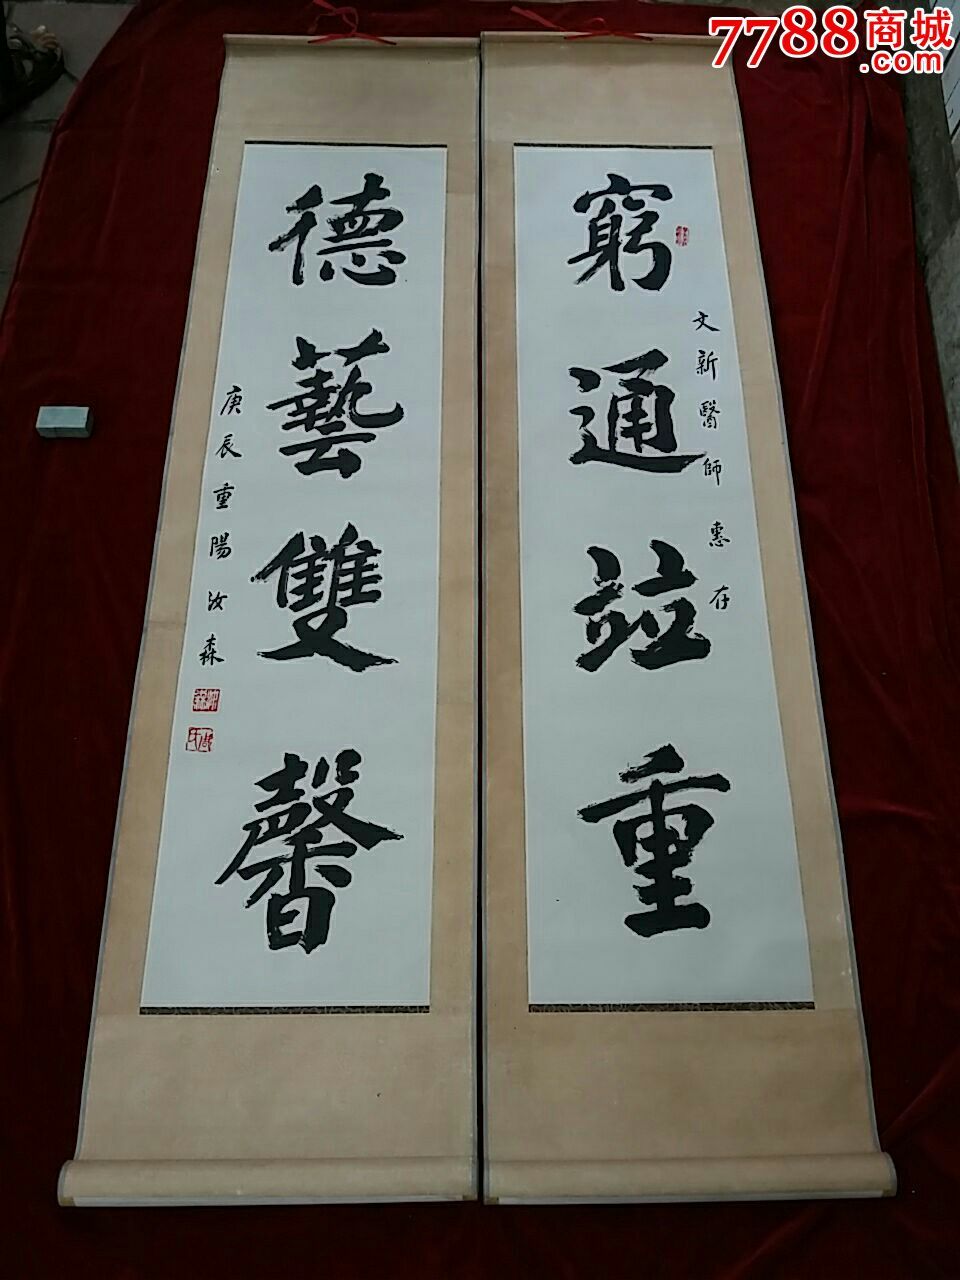 7788商城
.com
窮通竝重
文新醫師惠存
德藝雙馨
庚辰重陽汝森